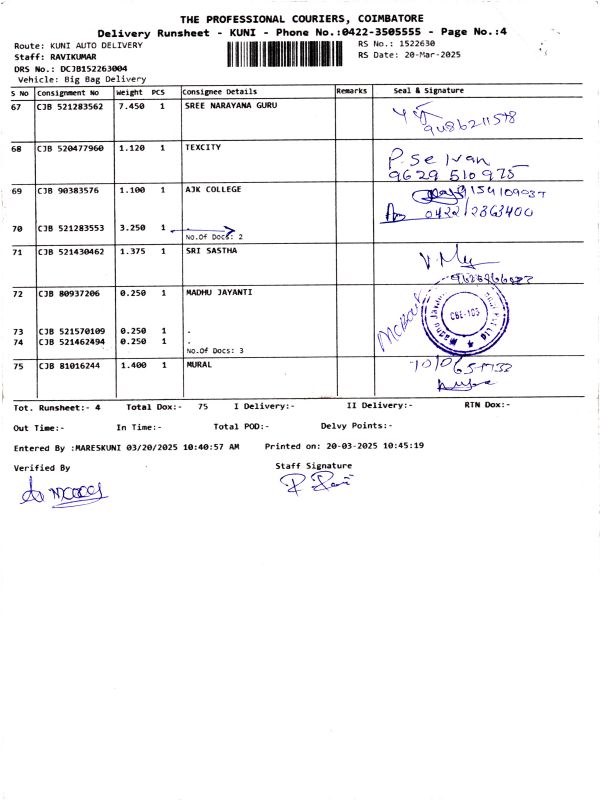 THE PROFESSIONAL COURIERS, COIMBATORE
Delivery Runsheet - KUNI - Phone No.:0422-3505555 - Page No.:4
Route: KUNI AUTO DELIVERY RS No.: 1522630
Staff: RAVIKUMAR RS Date: 20-Mar-2025
DRS No.: DCJB152263004
Vehicle: Big Bag Delivery
S No Consignment No Weight PCS Consignee Details Remarks Seal & Signature
67 CJB 521283562 7.450 1 SREE NARAYANA GURU
9486211578
68 CJB 520477960 1.120 1 TEXCITY P. Selvan
9629 510 975
69 CJB 90383576 1.100 1 AJK COLLEGE
0422/2363400
70 CJB 521283553 3.250 1
No.Of Docs: 2
71 CJB 521430462 1.375 1 SRI SASTHA
72 CJB 80937206 0.250 1 MADHU JAYANTI
CBE-103
73 CJB 521570109 0.250 1 .
74 CJB 521462494 0.250 1 .
No.Of Docs: 3
75 CJB 81016244 1.400 1 MURAL
Tot. Runsheet:- 4 Total Dox:- 75 I Delivery:- II Delivery:- RTN Dox:-
Out Time:- In Time:- Total POD:- Delvy Points:-
Entered By :MARESKUNI 03/20/2025 10:40:57 AM Printed on: 20-03-2025 10:45:19
Verified By Staff Signature